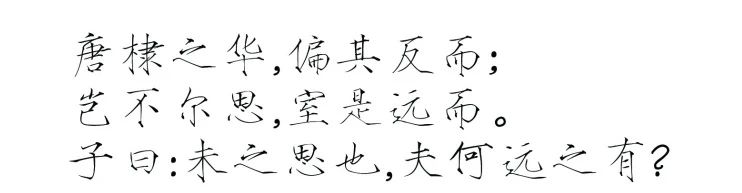 唐棣之华,偏其反而;
岂不尔思,室是远而。
子曰:未之思也,夫何远之有?